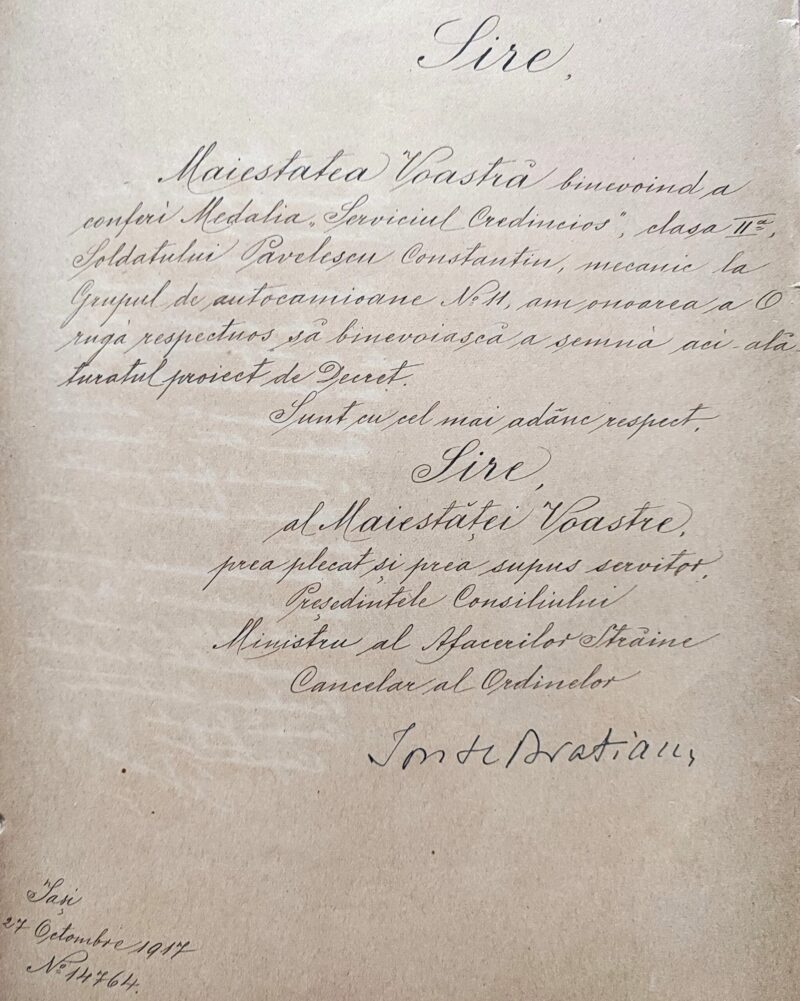 Sire,
Maiestatea Voastră binevoind a
conferi Medalia „Serviciul Credincios”, clasa IIa,
Soldatului Pavelescu Constantin, mecanic la
Grupul de autocamioane No 11, am onoarea a O
rugà respectuos să binevoiască a semnà aci-ală-
turatul proiect de Decret.
Sunt cu cel mai adânc respect,
Sire,
al Maiestăței Voastre,
prea plecat și prea supus servitor,
Președintele Consiliului
Ministru al Afacerilor Străine
Cancelar al Ordinelor
Ion I C Bratianu
Iași
27 Octombre 1917
No 14764.